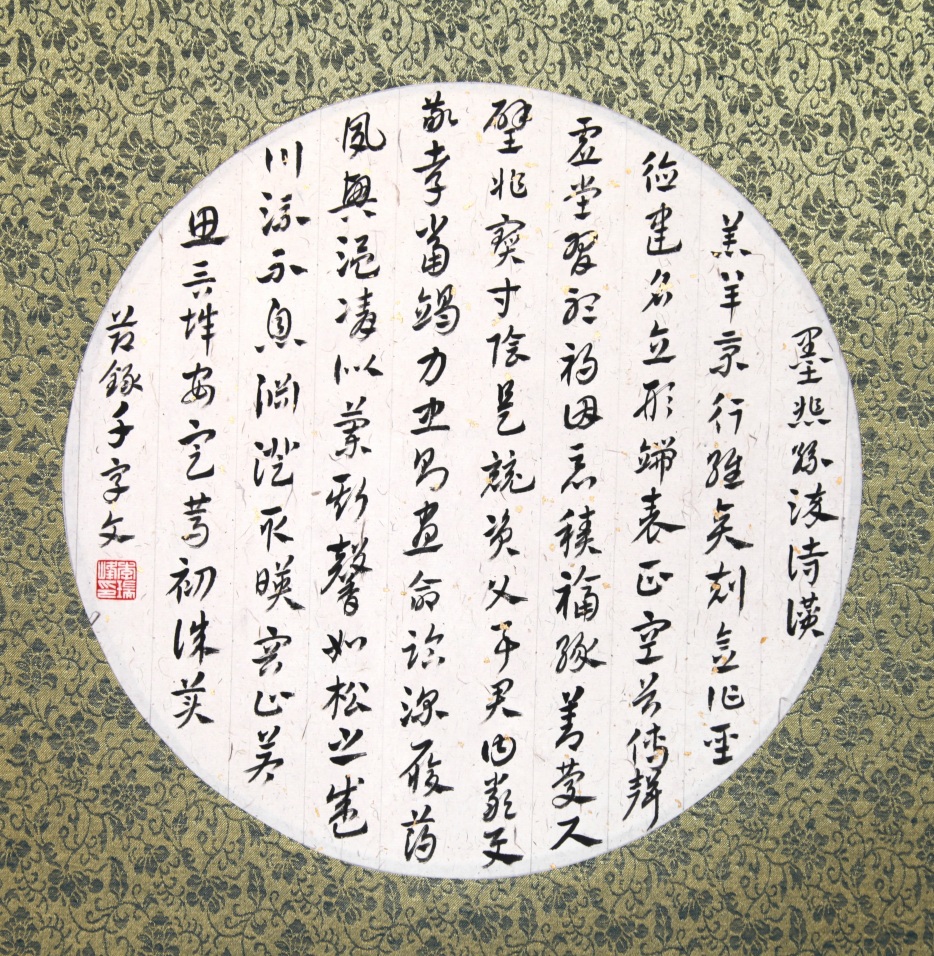 墨悲絲染詩讚
羔羊景行維賢剋念作聖
德建名立形端表正空谷傳聲
虛堂習聽禍因惡積福緣善慶尺
璧非寶寸陰是競資父事君曰嚴與
敬孝當竭力忠則盡命臨深履薄
夙興溫凊似蘭斯馨如松之盛
川流不息淵澄取映容止若
思言辭安定篤初誠美
節錄千字文